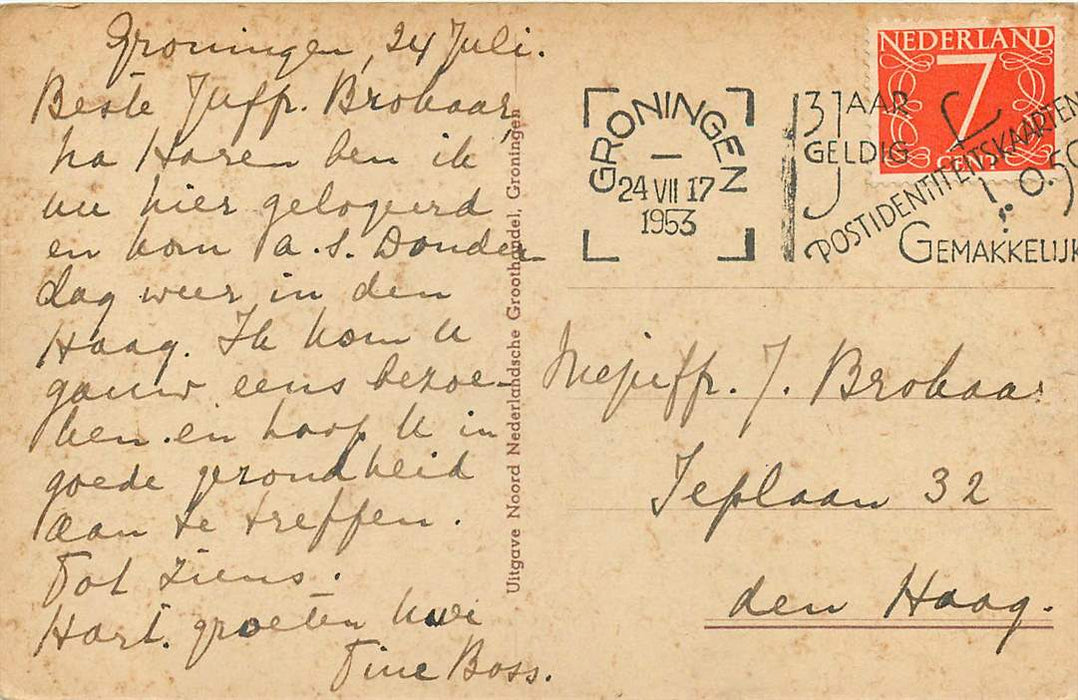 Groningen, 24 Juli.
Beste Juffr. Brokaar,
na Haren ben ik
nu hier gelogeerd
en kom a.s. Donder
dag weer in den
Haag. Ik kom U
gauw eens bezoe-
ken en hoop U in
goede gezondheid
aan te treffen.
Tot ziens.
Hart. groeten
Tine Boss.
Uitgave Noord Nederlandsche Groothandel, Groningen
GRONINGEN
24 VII 17
1953
3 JAAR
GELDIG
POSTIDENTITEITSKAARTEN
f. 0.50
GEMAKKELIJK
NEDERLAND
7
CENT
Mejuffr. J. Brokaar
Ieplaan 32
den Haag.